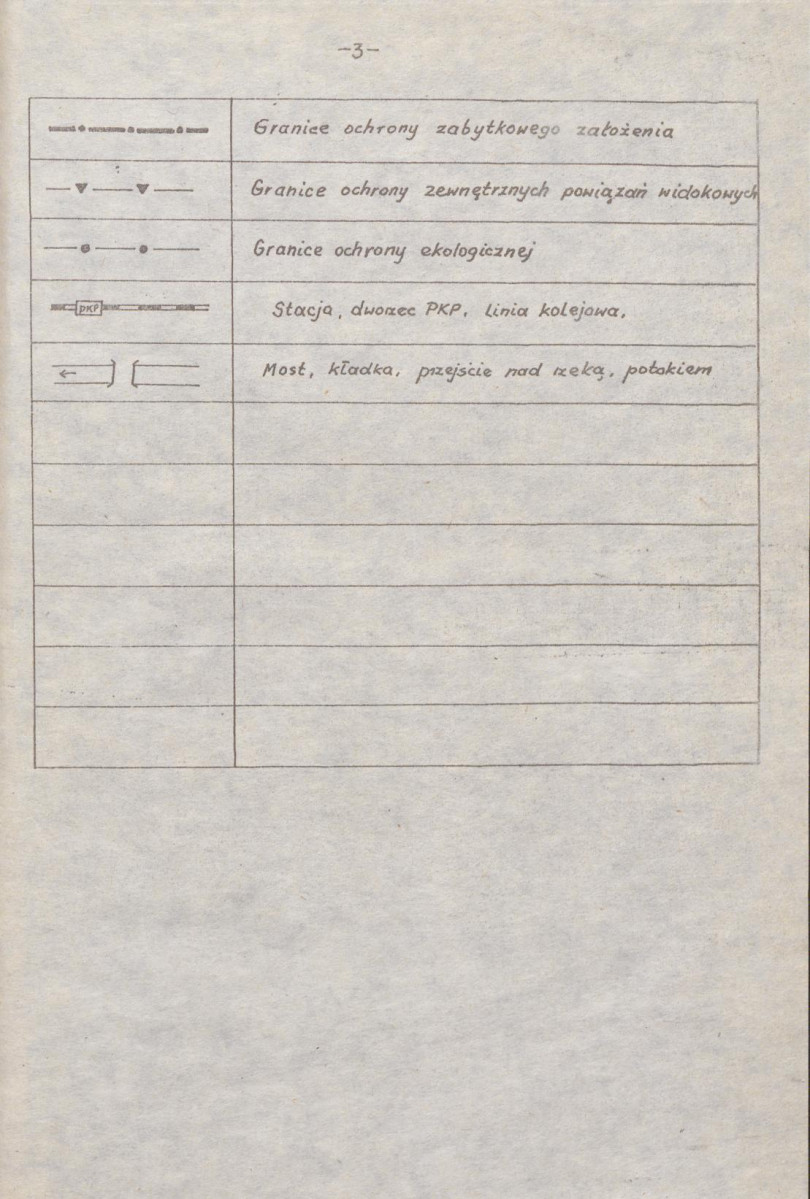 -3-
Granice ochrony zabytkowego założenia
Granice ochrony zewnętrznych powiązań widokowych
Granice ochrony ekologicznej
PKP
Stacja, dworzec PKP, linia kolejowa.
Most, kładka, przejście nad rzeką, potokiem